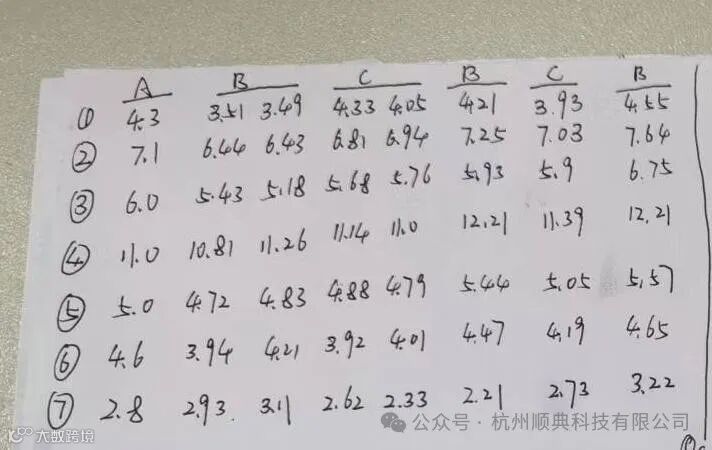 A B C B C B
① 4.3 3.51 3.49 4.33 4.05 4.21 3.93 4.55
② 7.1 6.44 6.43 6.81 6.94 7.25 7.03 7.64
③ 6.0 5.43 5.18 5.68 5.76 5.93 5.9 6.75
④ 11.0 10.81 11.26 11.14 11.0 12.21 11.39 12.21
⑤ 5.0 4.72 4.83 4.88 4.79 5.44 5.05 5.57
⑥ 4.6 3.94 4.21 3.92 4.01 4.47 4.19 4.65
⑦ 2.8 2.93 3.11 2.62 2.33 2.21 2.73 3.22
公众号 · 杭州顺典科技有限公司
大数跨境